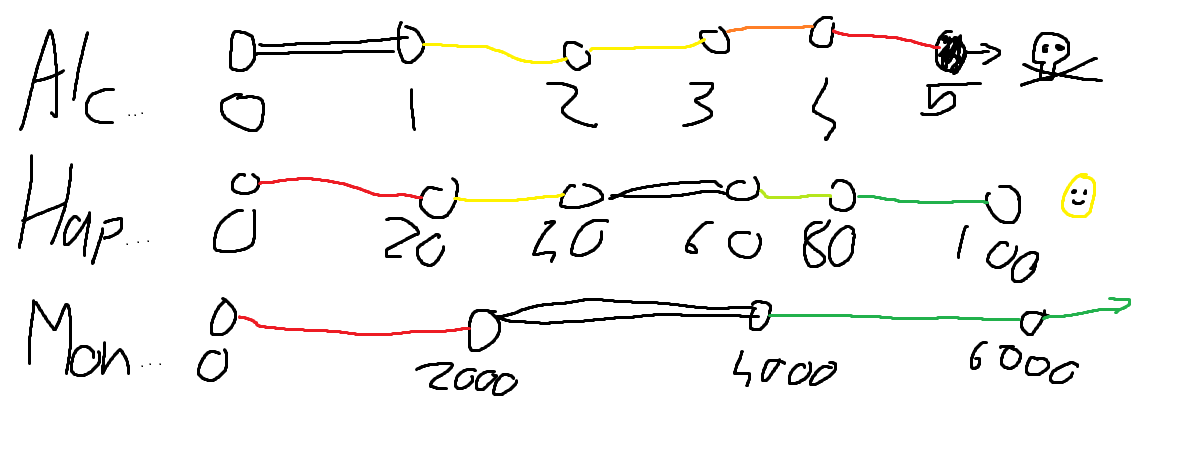 Alc...
0 1 2 3 4 5
Hap...
0 20 40 60 80 100
Mon...
0 2000 4000 6000